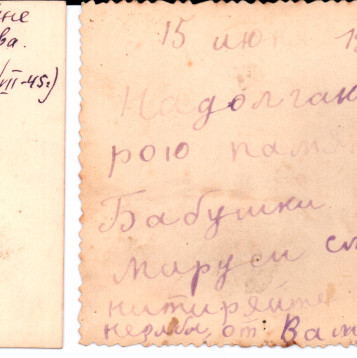 не
ва.
VII-45г)
15 июня 19
Надолгаю
рою памя
Бабушки
маруси
нитиряйте
от Вам